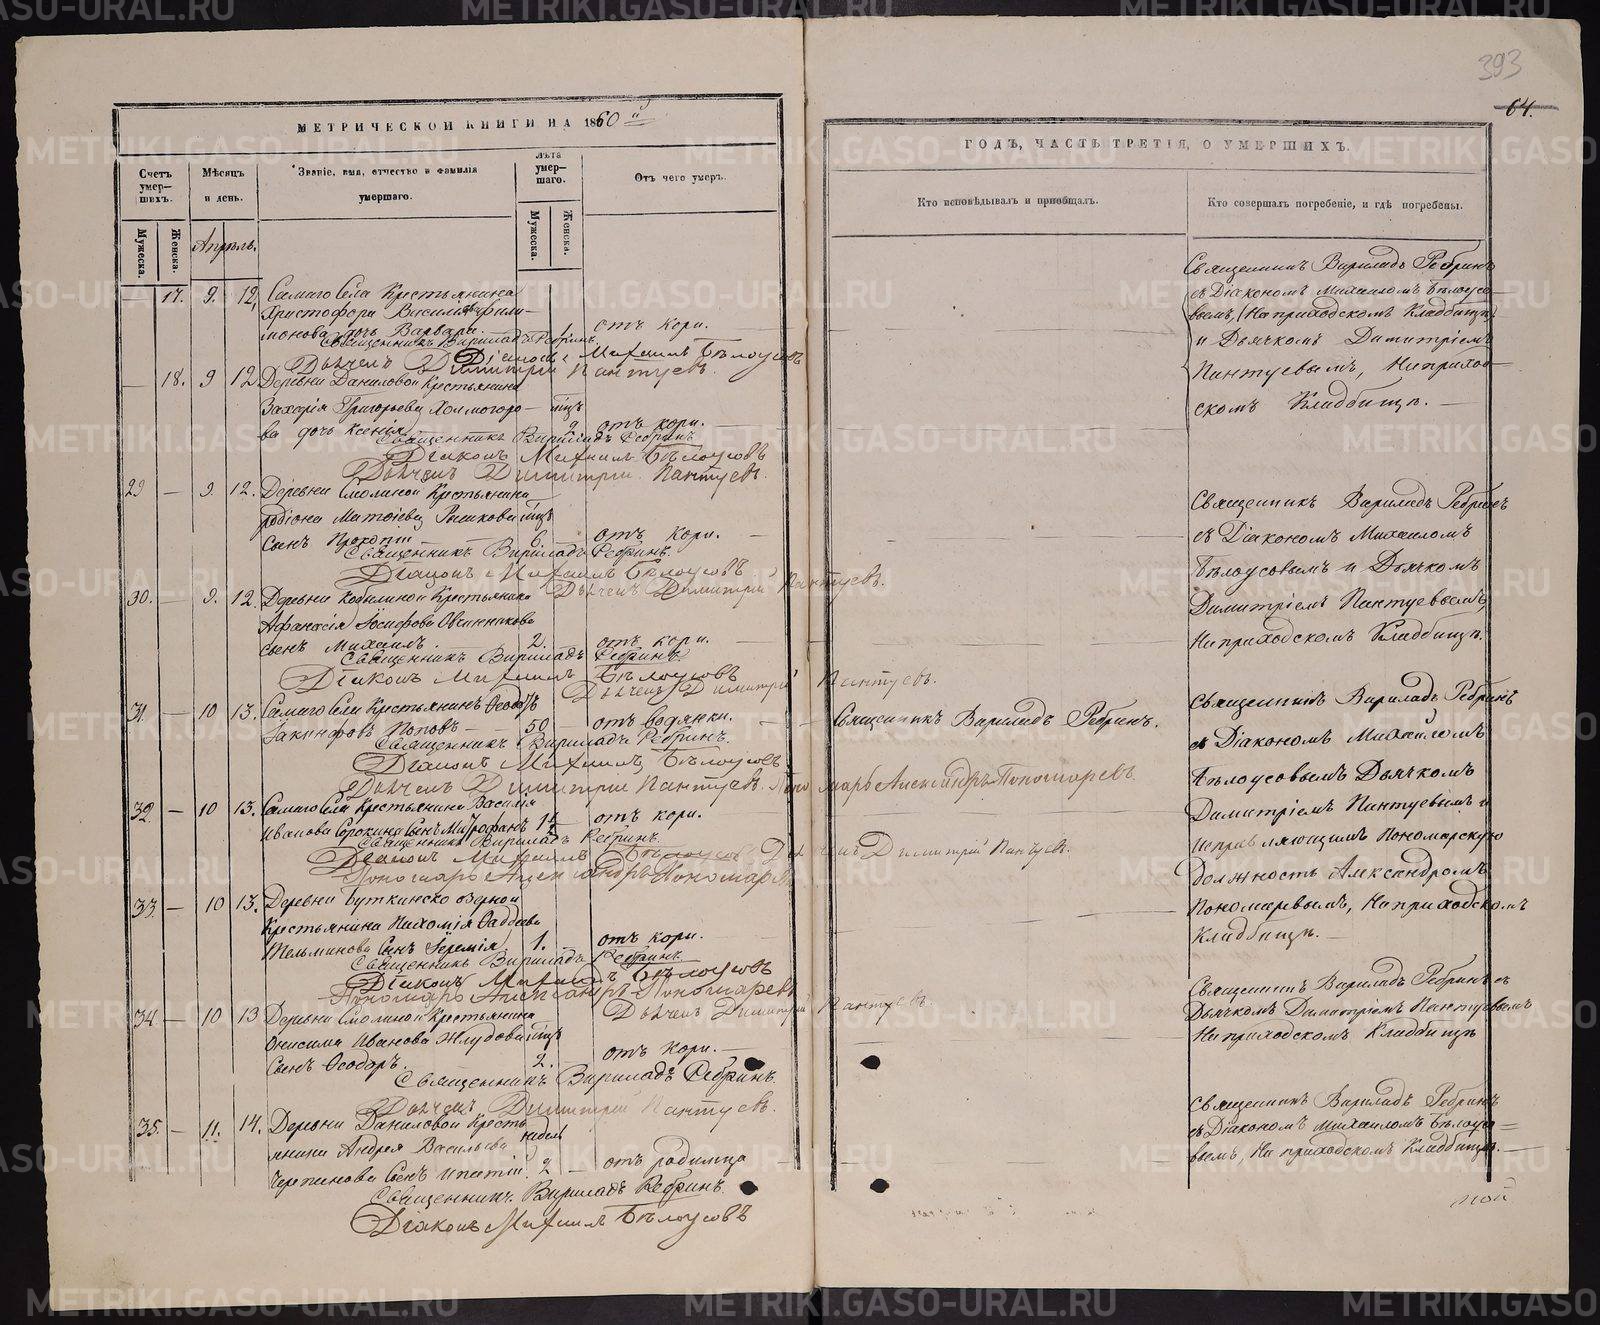 393
64.
МЕТРИЧЕСКОЙ КНИГИ НА 1860й
ГОДЪ, ЧАСТЬ ТРЕТІЯ, О УМЕРШИХЪ.
Счетъ умер-шихъ.
Мѣсяцъ и день.
Званіе, имя, отчество и фамилія умершаго.
Лѣта умер-шаго.
Отъ чего умеръ.
Кто исповѣдывалъ и пріобщалъ.
Кто совершалъ погребеніе, и гдѣ погребены.
Мужеска.
Женска.
Апрѣль.
Мужеска.
Женска.
— 17. 9. 12. Самаго Села Крестьянина
Христофора Васильева Фили-
монова дочь Варвара. 1. отъ кори.
Священникъ Вириладъ Ребринъ
Діаконъ Михаилъ Бѣлоусовъ
Дьячекъ Димитрій Пантуевъ.
Священникъ Вириладъ Ребринъ
съ Діакономъ Михаиломъ Бѣлоусо-
вымъ, На приходскомъ Кладбищѣ
и Дьячкомъ Димитріемъ
Пантуевымъ, На приход-
скомъ Кладбищѣ. —
— 18. 9 12 Деревни Даниловой Крестьянина
Захарія Григорьева Холмогоро-
ва дочь Ксенія 2 отъ кори.
Священникъ Вириладъ Ребринъ
Діаконъ Михаилъ Бѣлоусовъ
Дьячекъ Димитрій Пантуевъ.
29 — 9. 12. Деревни Смолиной Крестьянина
Родіона Матѳіева
Сынъ Прокопій 6. отъ кори. —
Священникъ Вириладъ Ребринъ.
Діаконъ Михаилъ Бѣлоусовъ
Дьячекъ Димитрій Пантуевъ.
Священникъ Вириладъ Ребринъ
съ Діакономъ Михаиломъ
Бѣлоусовымъ и Дьячкомъ
Димитріемъ Пантуевымъ
На приходскомъ Кладбищѣ.
30. — 9. 12. Деревни Кобылиной Крестьянина
Афанасія Іосифова Овсянникова
сынъ Михаилъ. 2. отъ кори. —
Священникъ Вириладъ Ребринъ.
Діаконъ Михаилъ Бѣлоусовъ
Дьячекъ Димитрій Пантуевъ.
31. — 10 13. Самаго Села Крестьянинъ Ѳеодоръ
Іакинфовъ Поповъ — 50 — отъ водянки.
Священникъ Вириладъ Ребринъ.
Священникъ Вириладъ Ребринъ.
Діаконъ Михаилъ Бѣлоусовъ
Дьячекъ Димитрій Пантуевъ. Пономарь Александръ Пономаревъ
Священникъ Вириладъ Ребринъ
съ Діакономъ Михаиломъ
Бѣлоусовымъ Дьячкомъ
Димитріемъ Пантуевымъ и
исправляющимъ Пономарскую
должность Александромъ
Пономаревымъ, На приходскомъ
Кладбищѣ. —
32. — 10 13. Самаго Села Крестьянина Василія
Иванова Сорокина Сынъ Митрофанъ отъ кори.
Священникъ Вириладъ Ребринъ.
Діаконъ Михаилъ Бѣлоусовъ Дьячекъ Димитрій Пантуевъ.
Пономарь Александръ Пономаревъ
33. — 10 13. Деревни Буткинско озерной
Крестьянина Пахомія Фаддеева
Тельминова Сынъ Іеремія 1. отъ кори.
Священникъ Вириладъ Ребринъ
Діаконъ Михаилъ Бѣлоусовъ
Пономарь Александръ Пономаревъ
Дьячекъ Димитрій Пантуевъ.
34 — 10 13 Деревни Смолиной Крестьянина
Онисима Иванова Жлудова
Сынъ Ѳеодоръ. 2. отъ кори. —
Священникъ Вириладъ Ребринъ
Дьячекъ Димитрій Пантуевъ.
Священникъ Вириладъ Ребринъ съ
Дьячкомъ Димитріемъ Пантуевымъ
На приходскомъ Кладбищѣ
35. — 11. 14. Деревни Даниловой Кресть-
янина Андрея Васильева недель
Черепанова Сынъ Ипатій 2 — отъ родимца
Священникъ Вириладъ Ребринъ.
Діаконъ Михаилъ Бѣлоусовъ
Священникъ Вириладъ Ребринъ
съ Діакономъ Михаиломъ Бѣлоусо-
вымъ, На приходскомъ Кладбищѣ. —
ной
METRIKI.GASO-URAL.RU